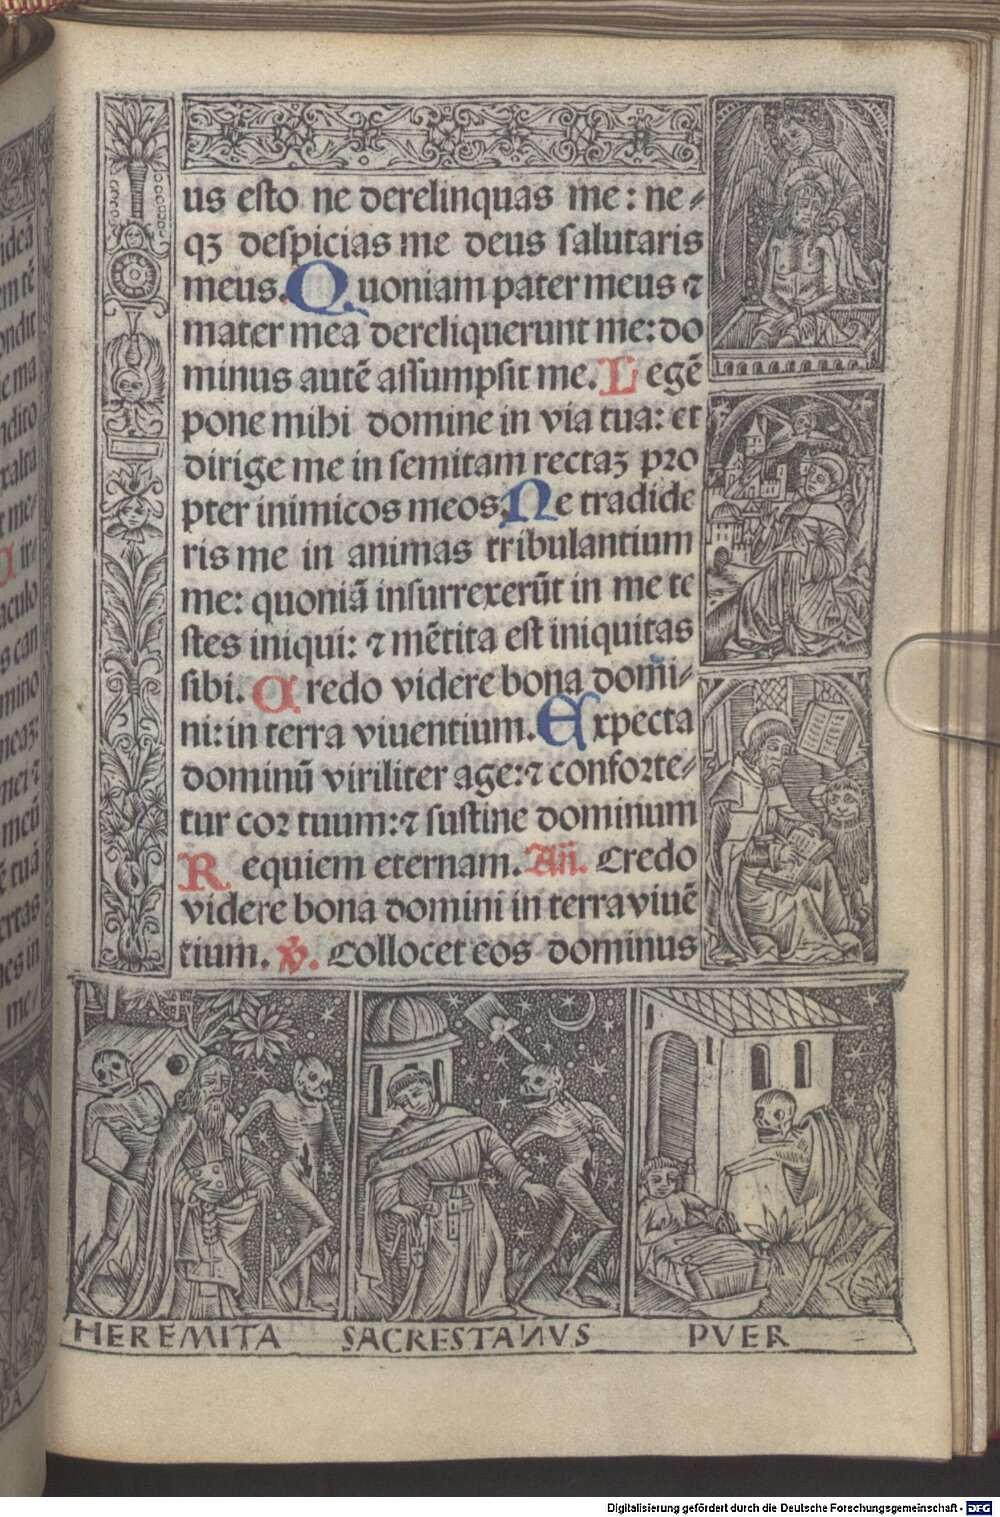 us esto ne derelinquas me: ne-
qꝫ despicias me deus salutaris
meus. Quoniam pater meus ⁊
mater mea dereliquerunt me: do
minus autē assumpsit me. Legē
pone mihi domine in via tua: et
dirige me in semitam rectaꝫ pro
pter inimicos meos. Ne tradide
ris me in animas tribulantium
me: quoniā insurrexerūt in me te
stes iniqui: ⁊ mētita est iniquitas
sibi. Credo videre bona domi-
ni: in terra viventium. Expecta
dominū viriliter age: ⁊ conforte-
tur cor tuum: ⁊ sustine dominum
Requiem eternam. Añ. Credo
videre bona domini in terra viuē
tium. ℣. Collocet eos dominus
HEREMITA SACRESTANVS PVER
Digitalisierung gefördert durch die Deutsche Forschungsgemeinschaft - DFG